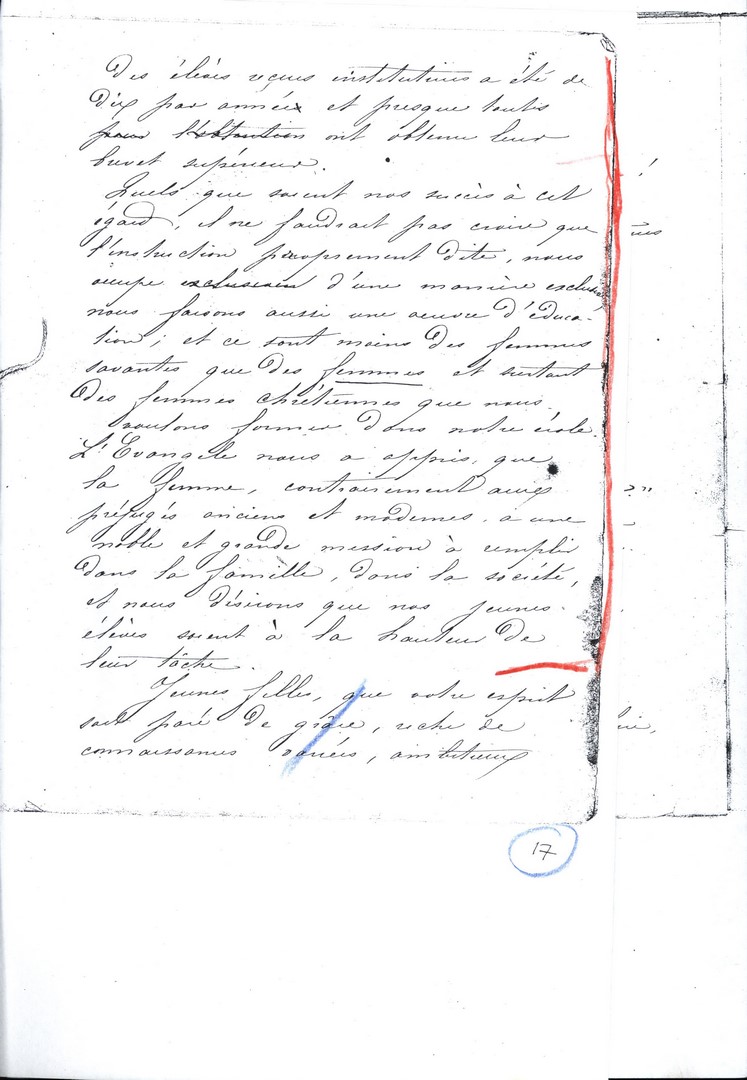 des élèves reçues institutrices a été de
dix par année et presque toutes
pour l'obtention ont obtenu leur
brevet supérieur.
Quels que soient nos succès à cet
égard, il ne faudrait pas croire que
l'instruction proprement dite, nous
occupe exclusivem d'une manière exclusive
nous faisons aussi une œuvre d'éduca-
tion ; et ce sont moins des femmes
savantes que des femmes et surtout
des femmes chrétiennes que nous
voulons former dans notre école.
L'Evangile nous a appris, que
la femme, contrairement aux
préjugés anciens et modernes, a une
noble et grande mission à remplir
dans la famille, dans la société,
et nous désirons que nos jeunes
élèves soient à la hauteur de
leur tâche.
Jeunes filles, que votre esprit
soit paré de grâce, riche de
connaissances variées, ambitieux
17